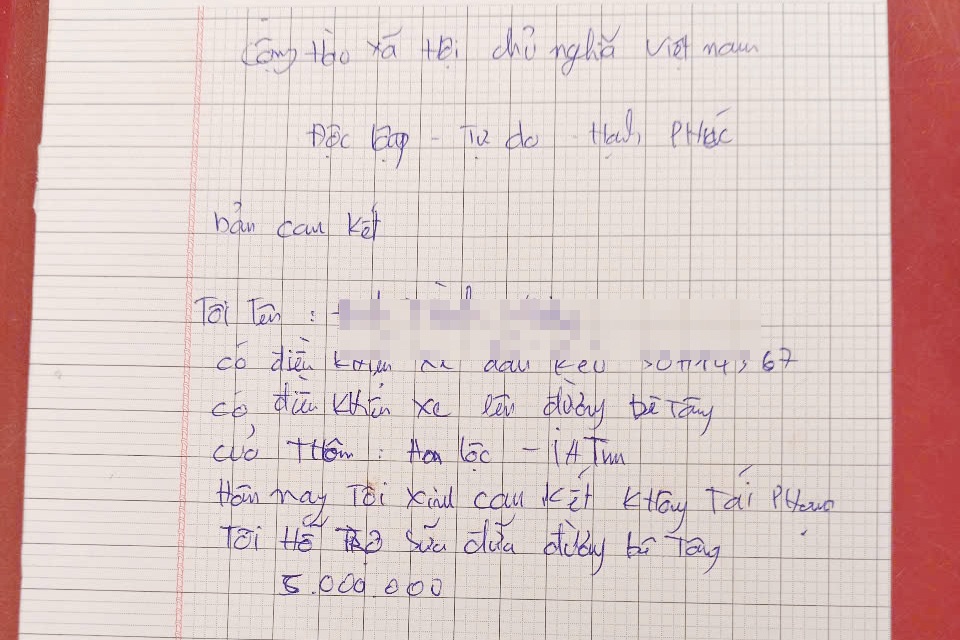 Cộng hòa xã hội chủ nghĩa Việt nam
Độc lập - Tự do - Hạnh PHúc
bản cam kết
Tôi Tên :
có điều khiển xe đầu kéo 67
có điều khiển xe lên đường bê Tông
của THôn : Hoa lộc - IA Tum
Hôm nay Tôi xinh cam kết không Tái PHạm
Tôi Hỗ Trợ sữa đữa đường bê Tông
5.000.000